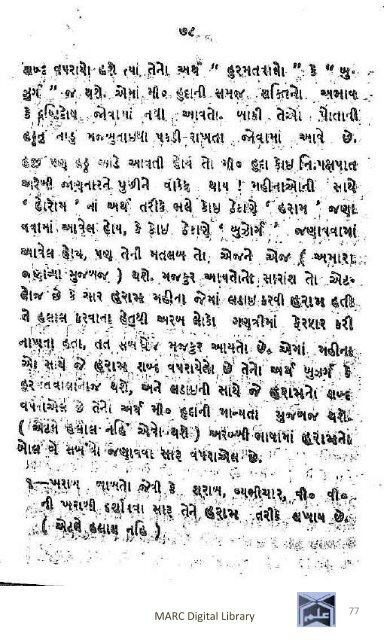 ૭૮
શબ્દ વપરાયો હશે ત્યાં તેનો અર્થ " હુરમતવાળો " કે " બુ-
ઝુર્ગ " જ થશે. એમાં મી૦ હુદાની સમજ શક્તિનો અભાવ
કે દ્રષ્ટિદોષ જોવામાં નથી આવતો. બાકી તેઓ પોતાની
હઠનું નાડુ મજબુતાઈથી પકડી રાખતા જોવામાં આવે છે.
હજી પણ હઠ આડે આવતી હોય તો મી૦ હુદા કોઇ નિઃપક્ષપાત
અરબી જાણનારને પુછીને વાકેફ થાય ! મહીનાઓની સાથે
' હારોમ ' નાં અર્થ તરીકે ભલે કોઇ ઠેકાણે ' હરામ ' જણા
વવામાં આવેલ હોય, કે કોઇ ઠેકાણે ' બુઝોર્ગ ' જણાવવામાં
આવેલ હોય, પણ તેની મતલબ તો એજને એજ ( અમારા
મુજબજ ) થશે. મજકુર આયતોનો સારાંશ તો એટ-
લોજ છે કે ચાર હરામ મહીના જેમાં લડાઇ કરવી હરામ હતી
તે હલાલ કરવાના હેતુથી અરબ લોકો ગણત્રીમાં ફેરફાર કરી
નાખતા હતા, તત સબંધે મજકુર આયતો છે. એમાં મહીના
ઓ સાથે જે હરામ શબ્દ વપરાયેલો છે તેનો અર્થ બુઝર્ગ કે
હુરમતવાલાનોજ થશે, અને લડાઇની સાથે જે હરામનો શબ્દ
વપરાએલ છે તેનો અર્થ મી૦ હુદાની માન્યતા મુજબજ થશે.
( એટલે હલાલ નહિ એવો થશે ) અરબ્બી ભાષામાં હરામનો
બોલ બે સબબો જણાવવા સારૂ વપરાએલ છે.
૧—ખરાબ બાબતો જેવી કે શરાબ, વ્યભીચાર, વી૦ વી૦
ની ખરાબી દર્શાવવા સારૂ તેને હરામ તરીકે લખાય છે.
( એટલે હલાલ નહિ )
MARC Digital Library
77